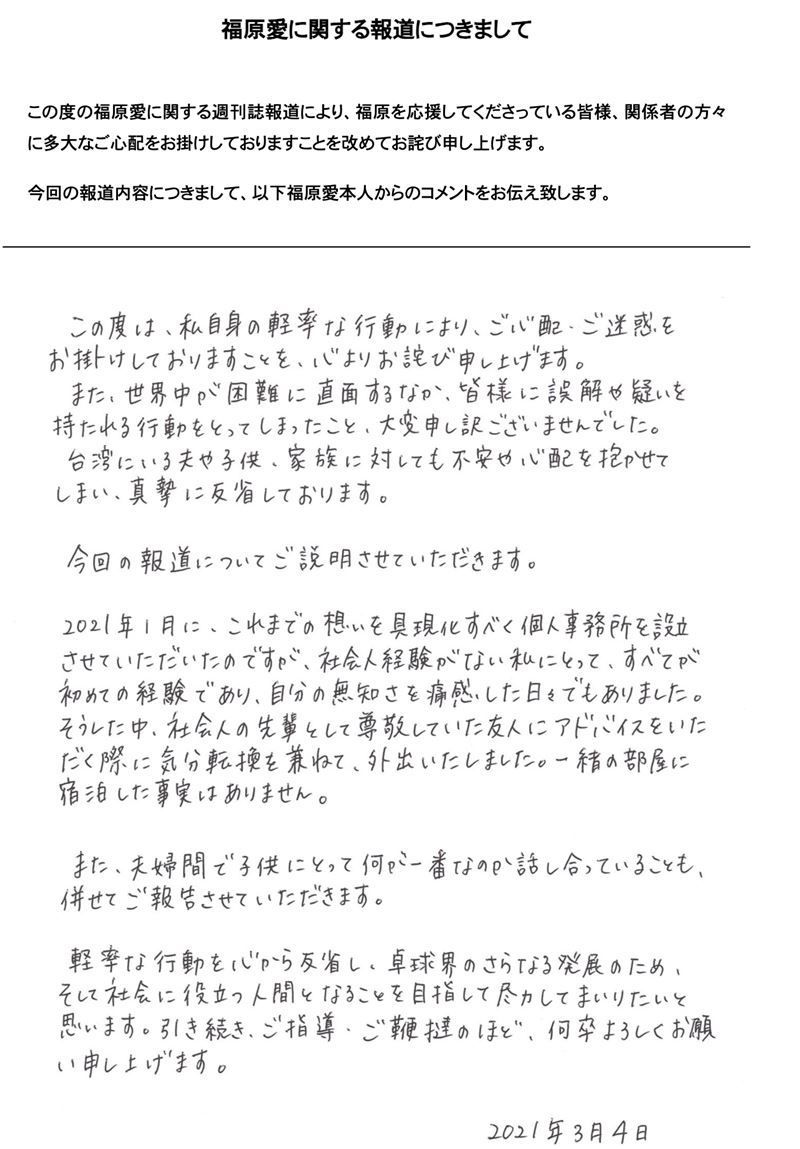 福原愛に関する報道につきまして
この度の福原愛に関する週刊誌報道により、福原を応援してくださっている皆様、関係者の方々
に多大なご心配をお掛けしておりますことを改めてお詫び申し上げます。
今回の報道内容につきまして、以下福原愛本人からのコメントをお伝え致します。
この度は、私自身の軽率な行動により、ご心配・ご迷惑を
お掛けしておりますことを、心よりお詫び申し上げます。
また、世界中が困難に直面するなか、皆様に誤解や疑いを
持たれる行動をとってしまったこと、大変申し訳ございませんでした。
台湾にいる夫や子供、家族に対しても不安や心配を抱かせて
しまい、真摯に反省しております。
今回の報道についてご説明させていただきます。
2021年1月に、これまでの想いを具現化すべく個人事務所を設立
させていただいたのですが、社会人経験がない私にとって、すべてが
初めての経験であり、自分の無知さを痛感した日々でもありました。
そうした中、社会人の先輩として尊敬していた友人にアドバイスをいた
だく際に気分転換を兼ねて、外出いたしました。一緒の部屋に
宿泊した事実はありません。
また、夫婦間で子供にとって何が一番なのか話し合っていることも、
併せてご報告させていただきます。
軽率な行動を心から反省し、卓球界のさらなる発展のため、
そして社会に役立つ人間となることを目指して尽力してまいりたいと
思います。引き続き、ご指導・ご鞭撻のほど、何卒よろしくお願
い申し上げます。
2021年3月4日